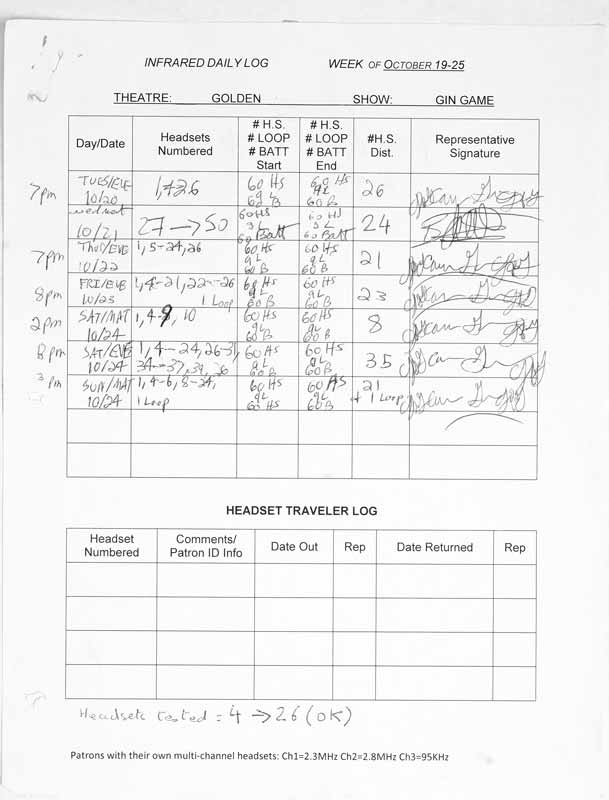 INFRARED DAILY LOG WEEK OF OCTOBER 19-25
THEATRE: GOLDEN SHOW: GIN GAME
Day/Date Headsets Numbered # H.S. # LOOP # BATT Start # H.S. # LOOP # BATT End #H.S. Dist. Representative Signature
7pm TUES/EVE 10/20 60 HS 9L 60 B 60 HS 9L 60 B 26
wed mat 10/21 27 → 50 60HS 60 Batt 60 HS 60 Batt 24
7pm THU/EVE 10/22 1, 5-24, 26 60 HS 9L 60 B 60 HS 9L 60 B 21
8pm FRI/EVE 10/23 1, 4-21, 22-26 1 Loop 60 HS 9L 60 B 60 HS 9L 60 B 23
2pm SAT/MAT 10/24 1, 4-9, 10 60 HS 9L 60 B 60 HS 9L 60 B 8
8pm SAT/EVE 10/24 1, 4-24, 26-31, 34-37, 39, 26 60 HS 9L 60 B 60 HS 9L 60 B 35
3pm SUN/MAT 10/24 1, 4-6, 8-24, 1 Loop 60 HS 9L 60 HS 60 HS 9L 60 B 21 + 1 Loop
HEADSET TRAVELER LOG
Headset Numbered Comments/ Patron ID Info Date Out Rep Date Returned Rep
Headsets tested = 4 → 26 (OK)
Patrons with their own multi-channel headsets: Ch1=2.3MHz Ch2=2.8MHz Ch3=95KHz